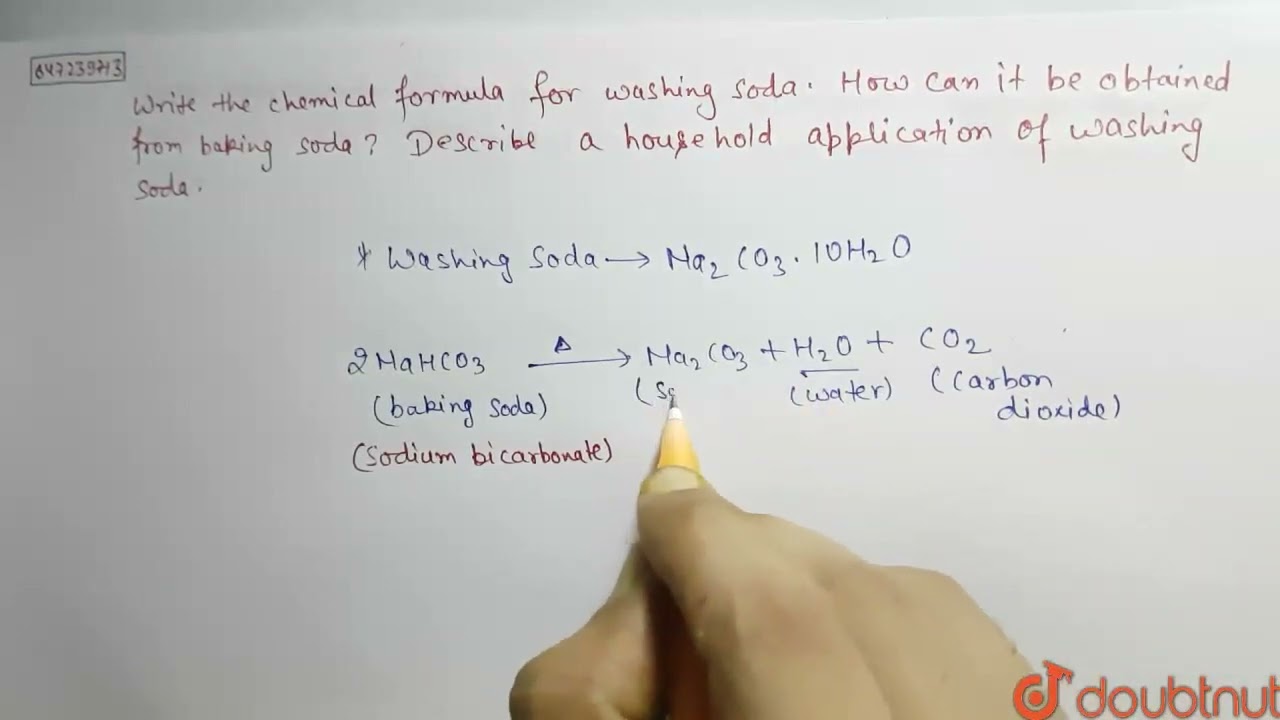 647239713
Write the chemical formula for washing soda. How can it be obtained
from baking soda? Describe a household application of washing
soda.
* Washing Soda → Na₂CO₃.10H₂O
2NaHCO₃ —Δ→ Na₂CO₃ + H₂O + CO₂
(baking soda) (So (water) (Carbon
dioxide)
(Sodium bicarbonate)
doubtnut